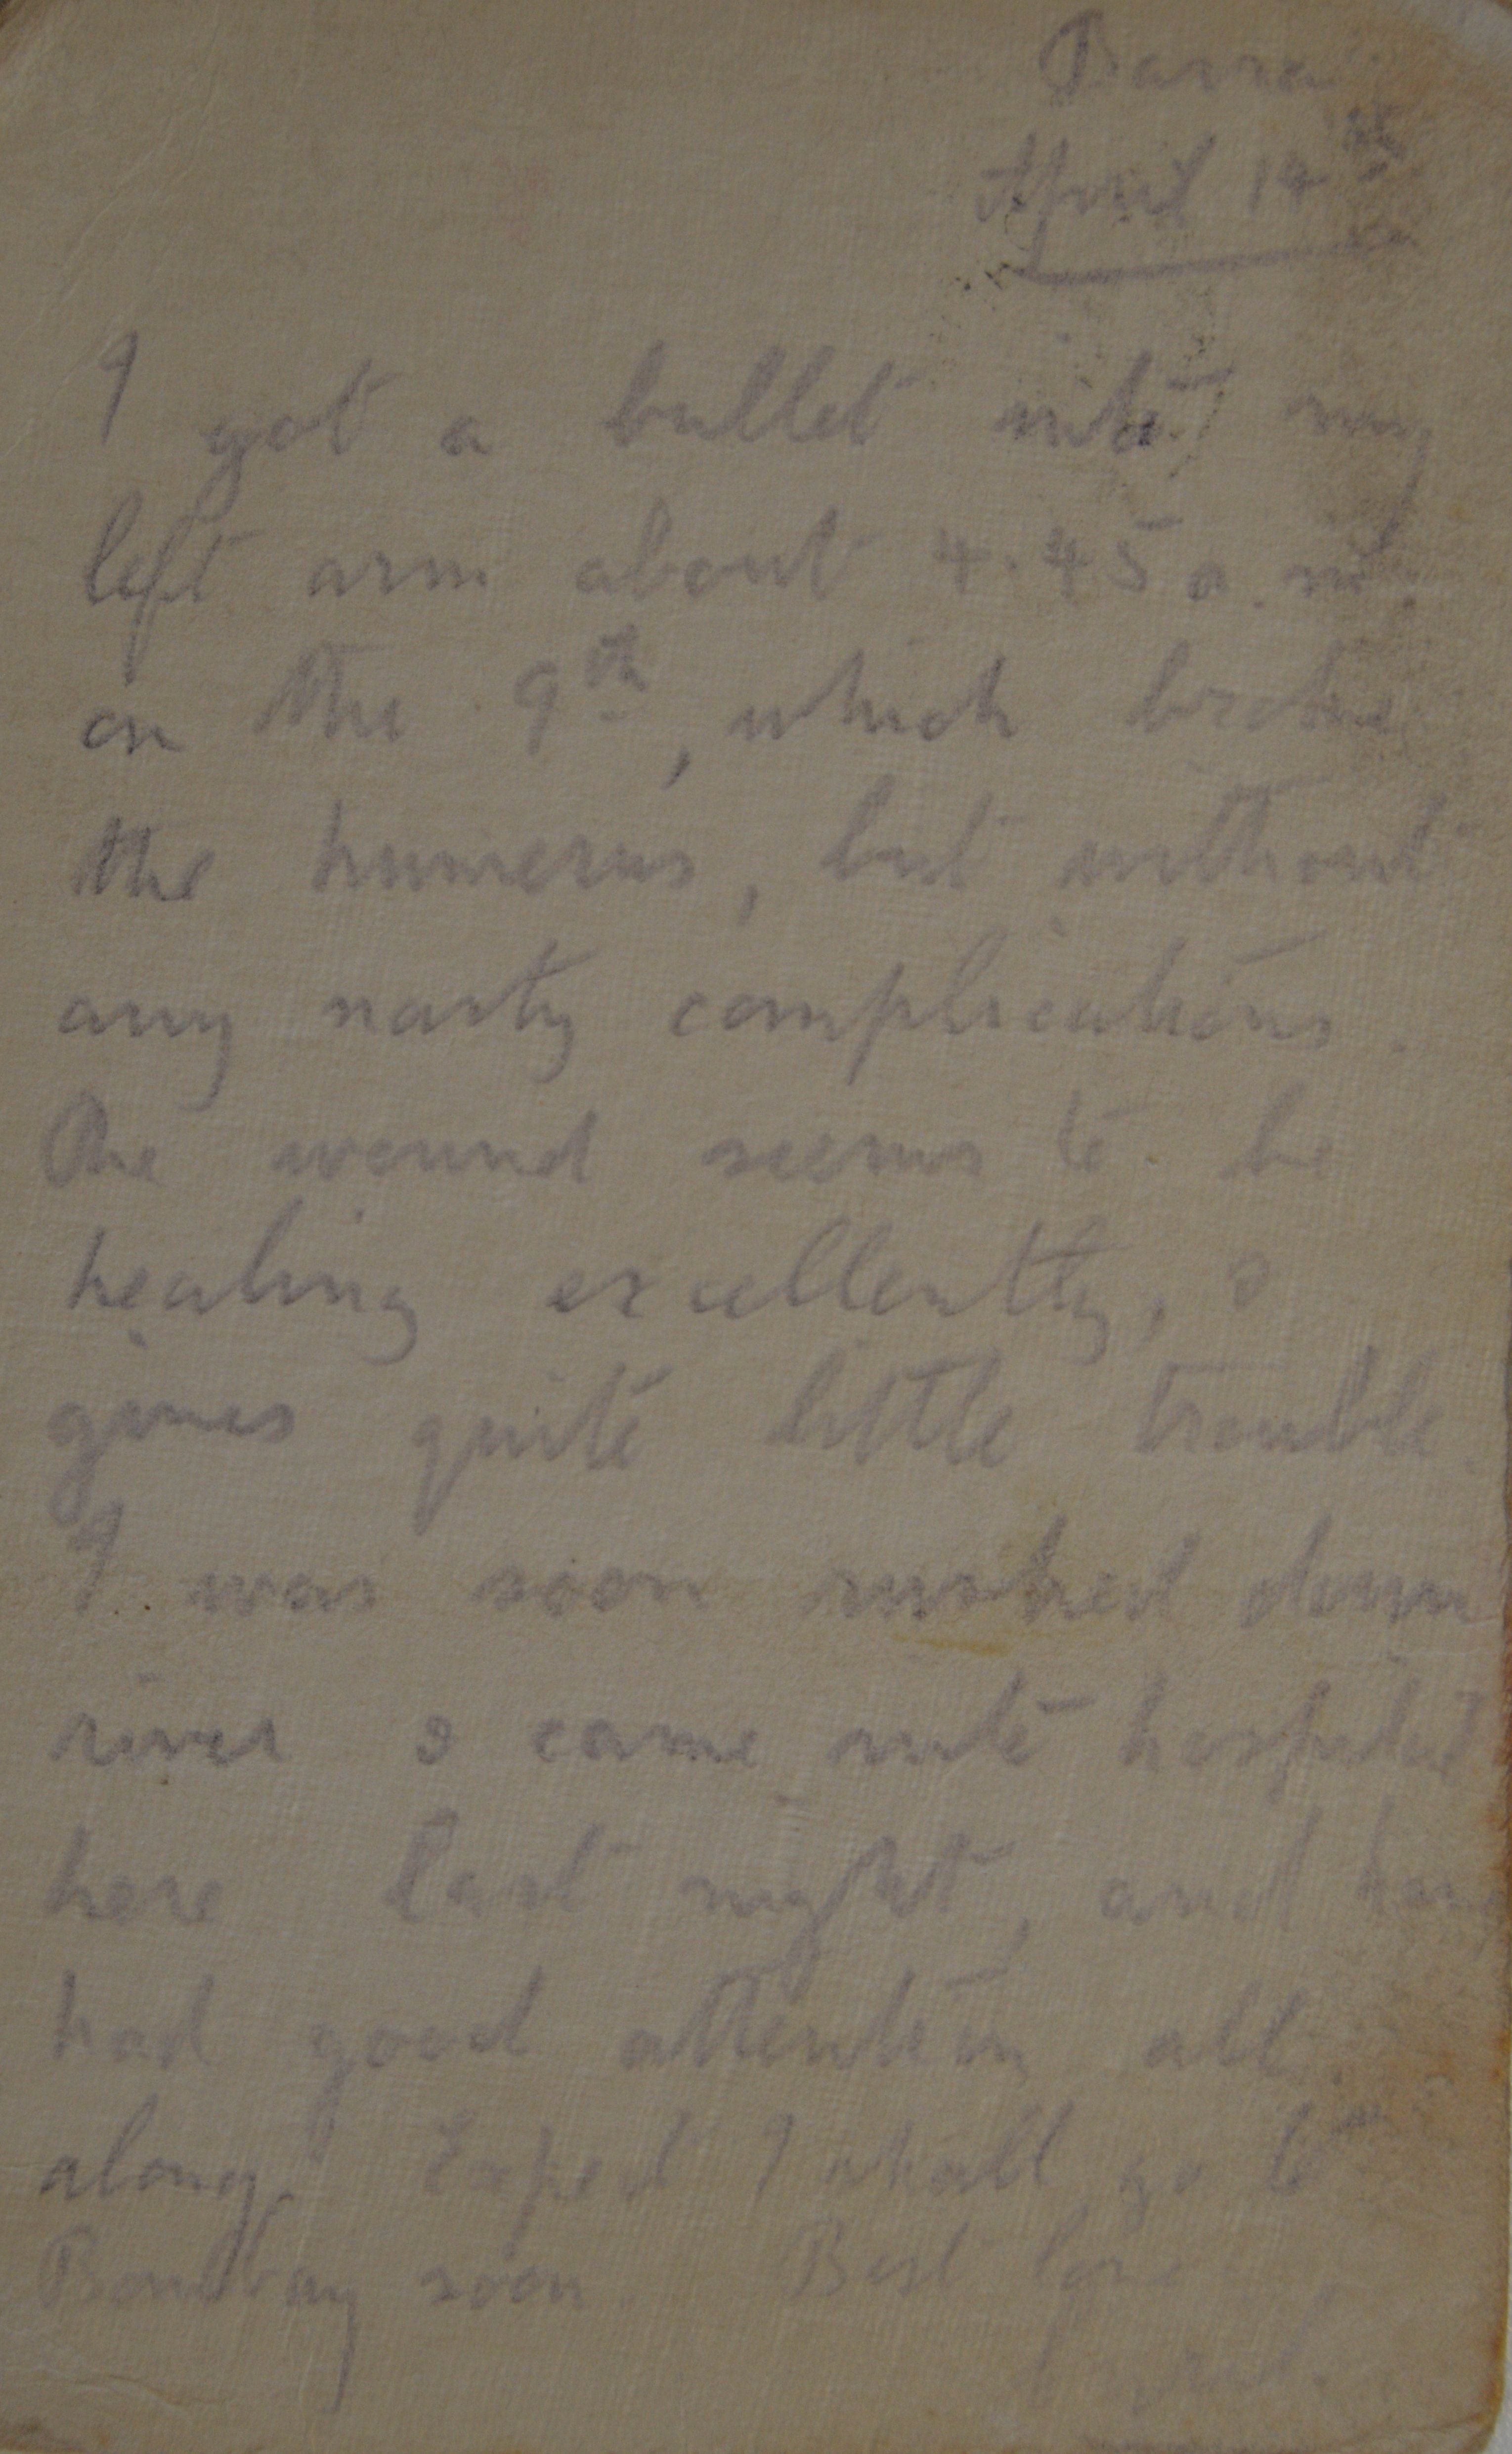 Basra
April 14th
I got a bullet into my
left arm about 4.45 a.m.
on the 9th, which broke
the humerus, but without
any nasty complications.
The wound seems to be
healing excellently, &
gives quite little trouble.
I was soon rushed down
river & came into hospital
here last night, and have
had good attention all
along. Expect I shall go to
Bombay soon. Best love